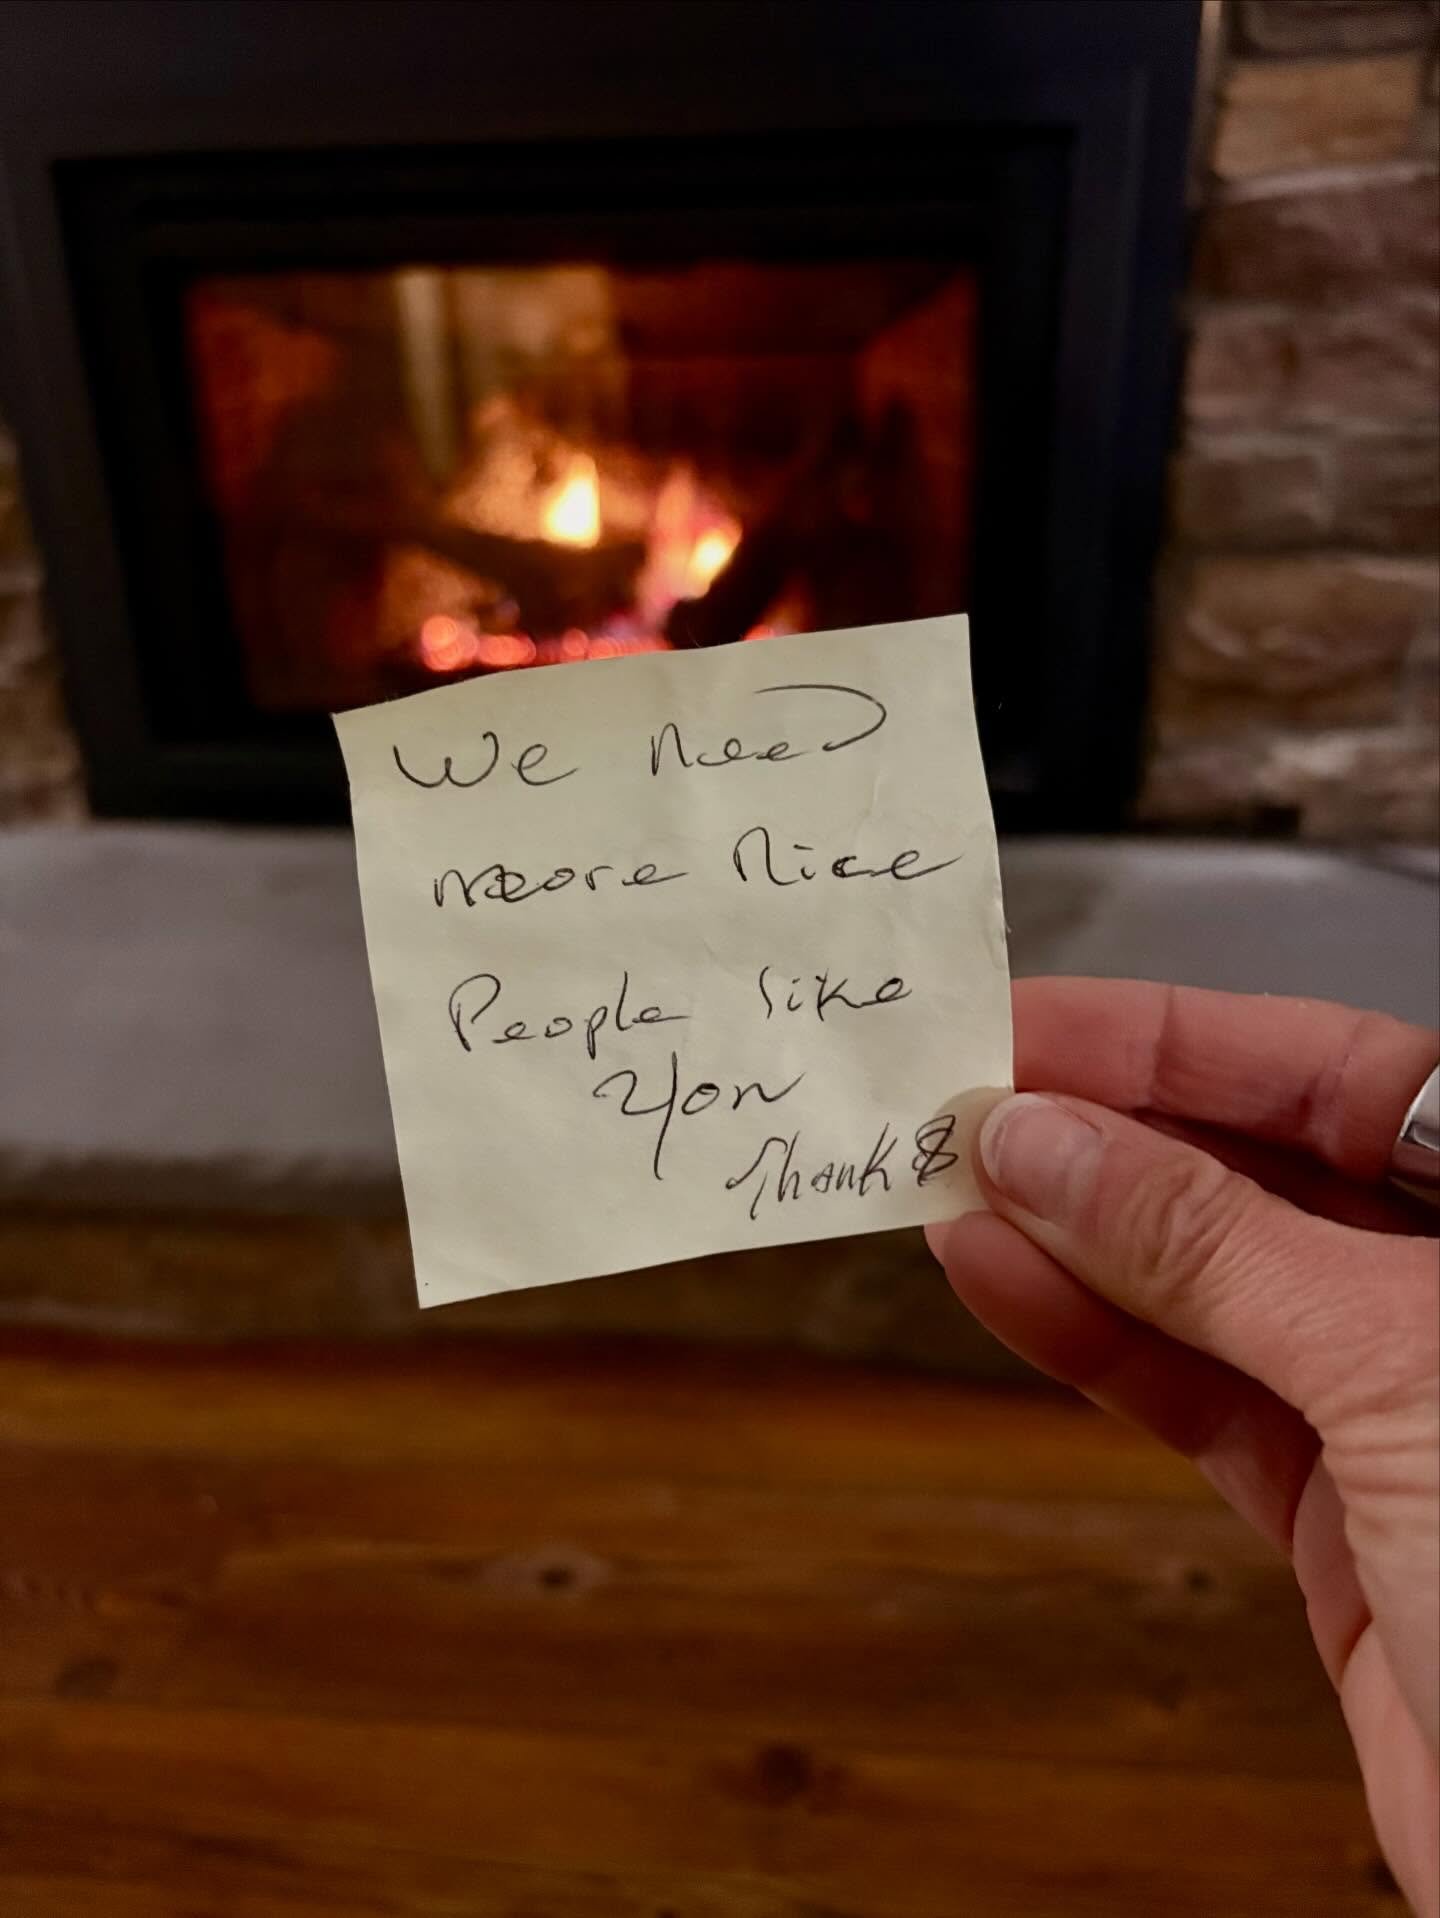 We need
more Nice
People like
you
Thanks